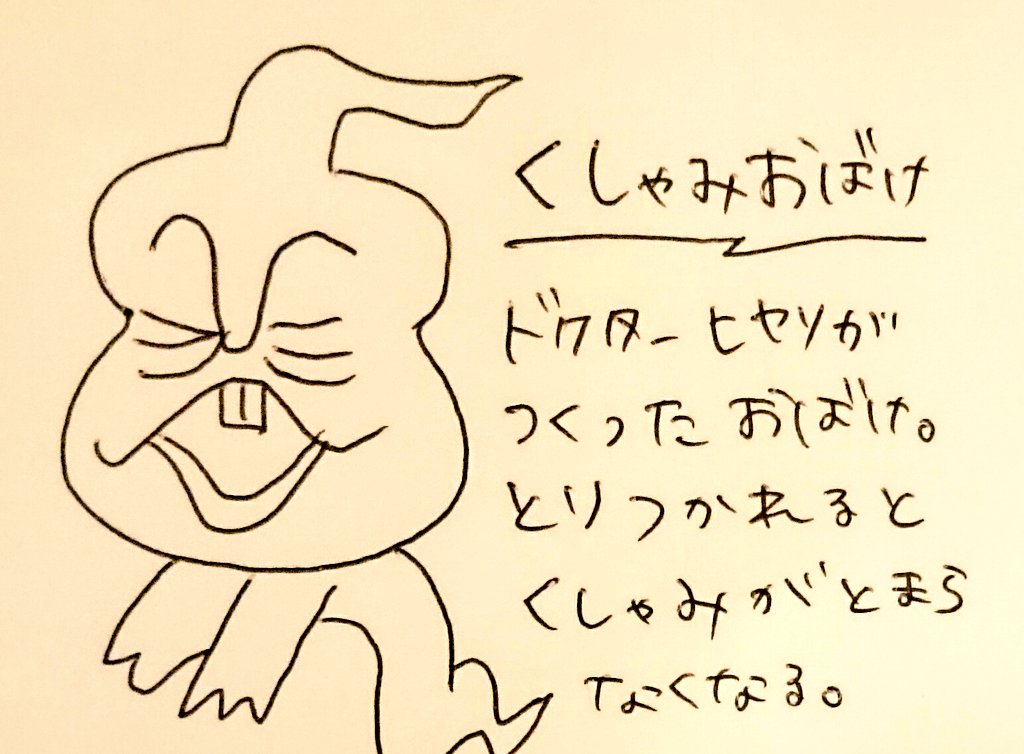 くしゃみおばけ
ドクターヒヤリが
つくったおばけ。
とりつかれると
くしゃみがとまら
なくなる。